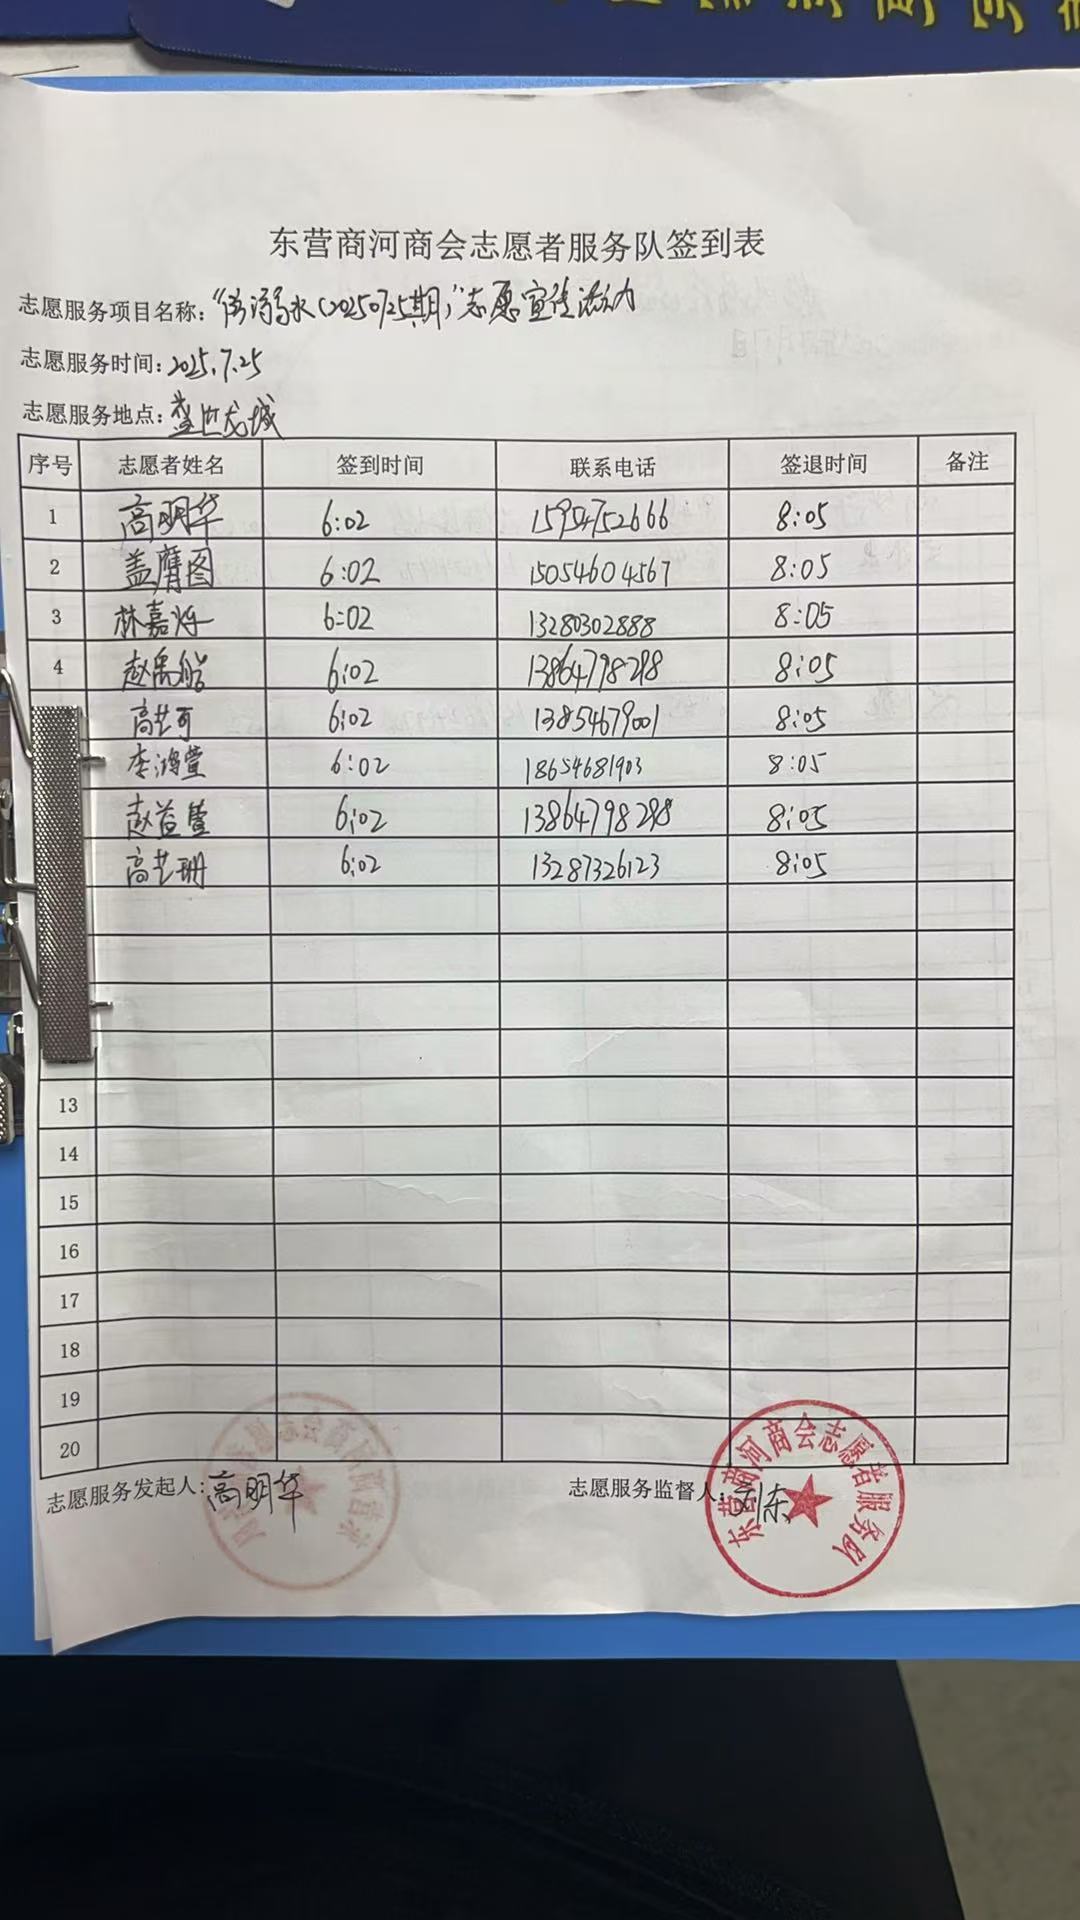 东营商河商会志愿者服务队签到表
志愿服务项目名称:"防溺水(20250725期)"志愿宣传活动
志愿服务时间:2025.7.25
志愿服务地点:盛世龙城
序号 志愿者姓名 签到时间 联系电话 签退时间 备注
1 高明华 6:02 15954752666 8:05
2 盖膺图 6:02 15054604567 8:05
3 林嘉烁 6:02 13280302888 8:05
4 赵禹皓 6:02 13864798298 8:05
高艺可 6:02 13854679001 8:05
李鸿萱 6:02 18654681903 8:05
赵益萱 6:02 13864798298 8:05
高艺珊 6:02 13287326123 8:05
13
14
15
16
17
18
19
20
志愿服务发起人:高明华 志愿服务监督人:刘东
东营商河商会志愿者服务队